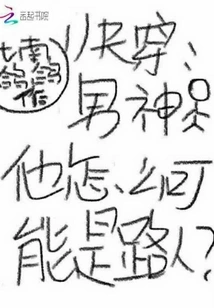 云起书院
南
鸽鸽
作
快穿:
男神
他怎么可
能是路人?